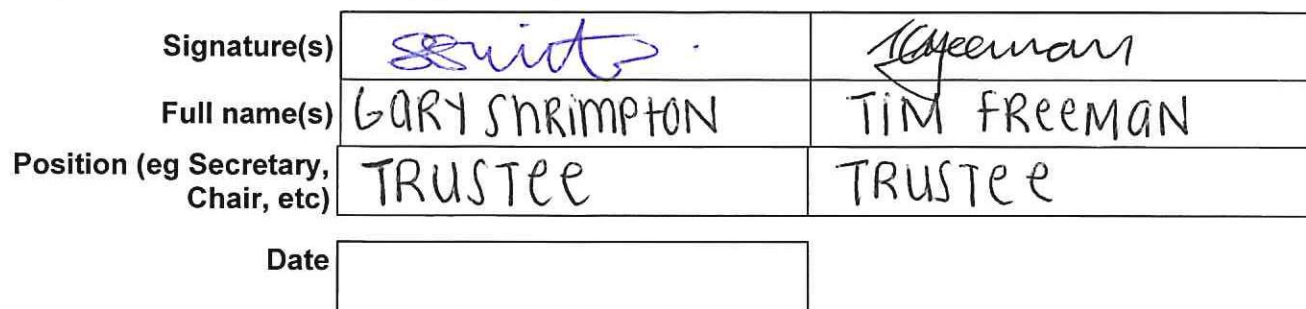 Signature(s)
Full name(s) GARY SHRIMPTON TIM FREEMAN
Position (eg Secretary, Chair, etc) TRUSTEE TRUSTEE
Date